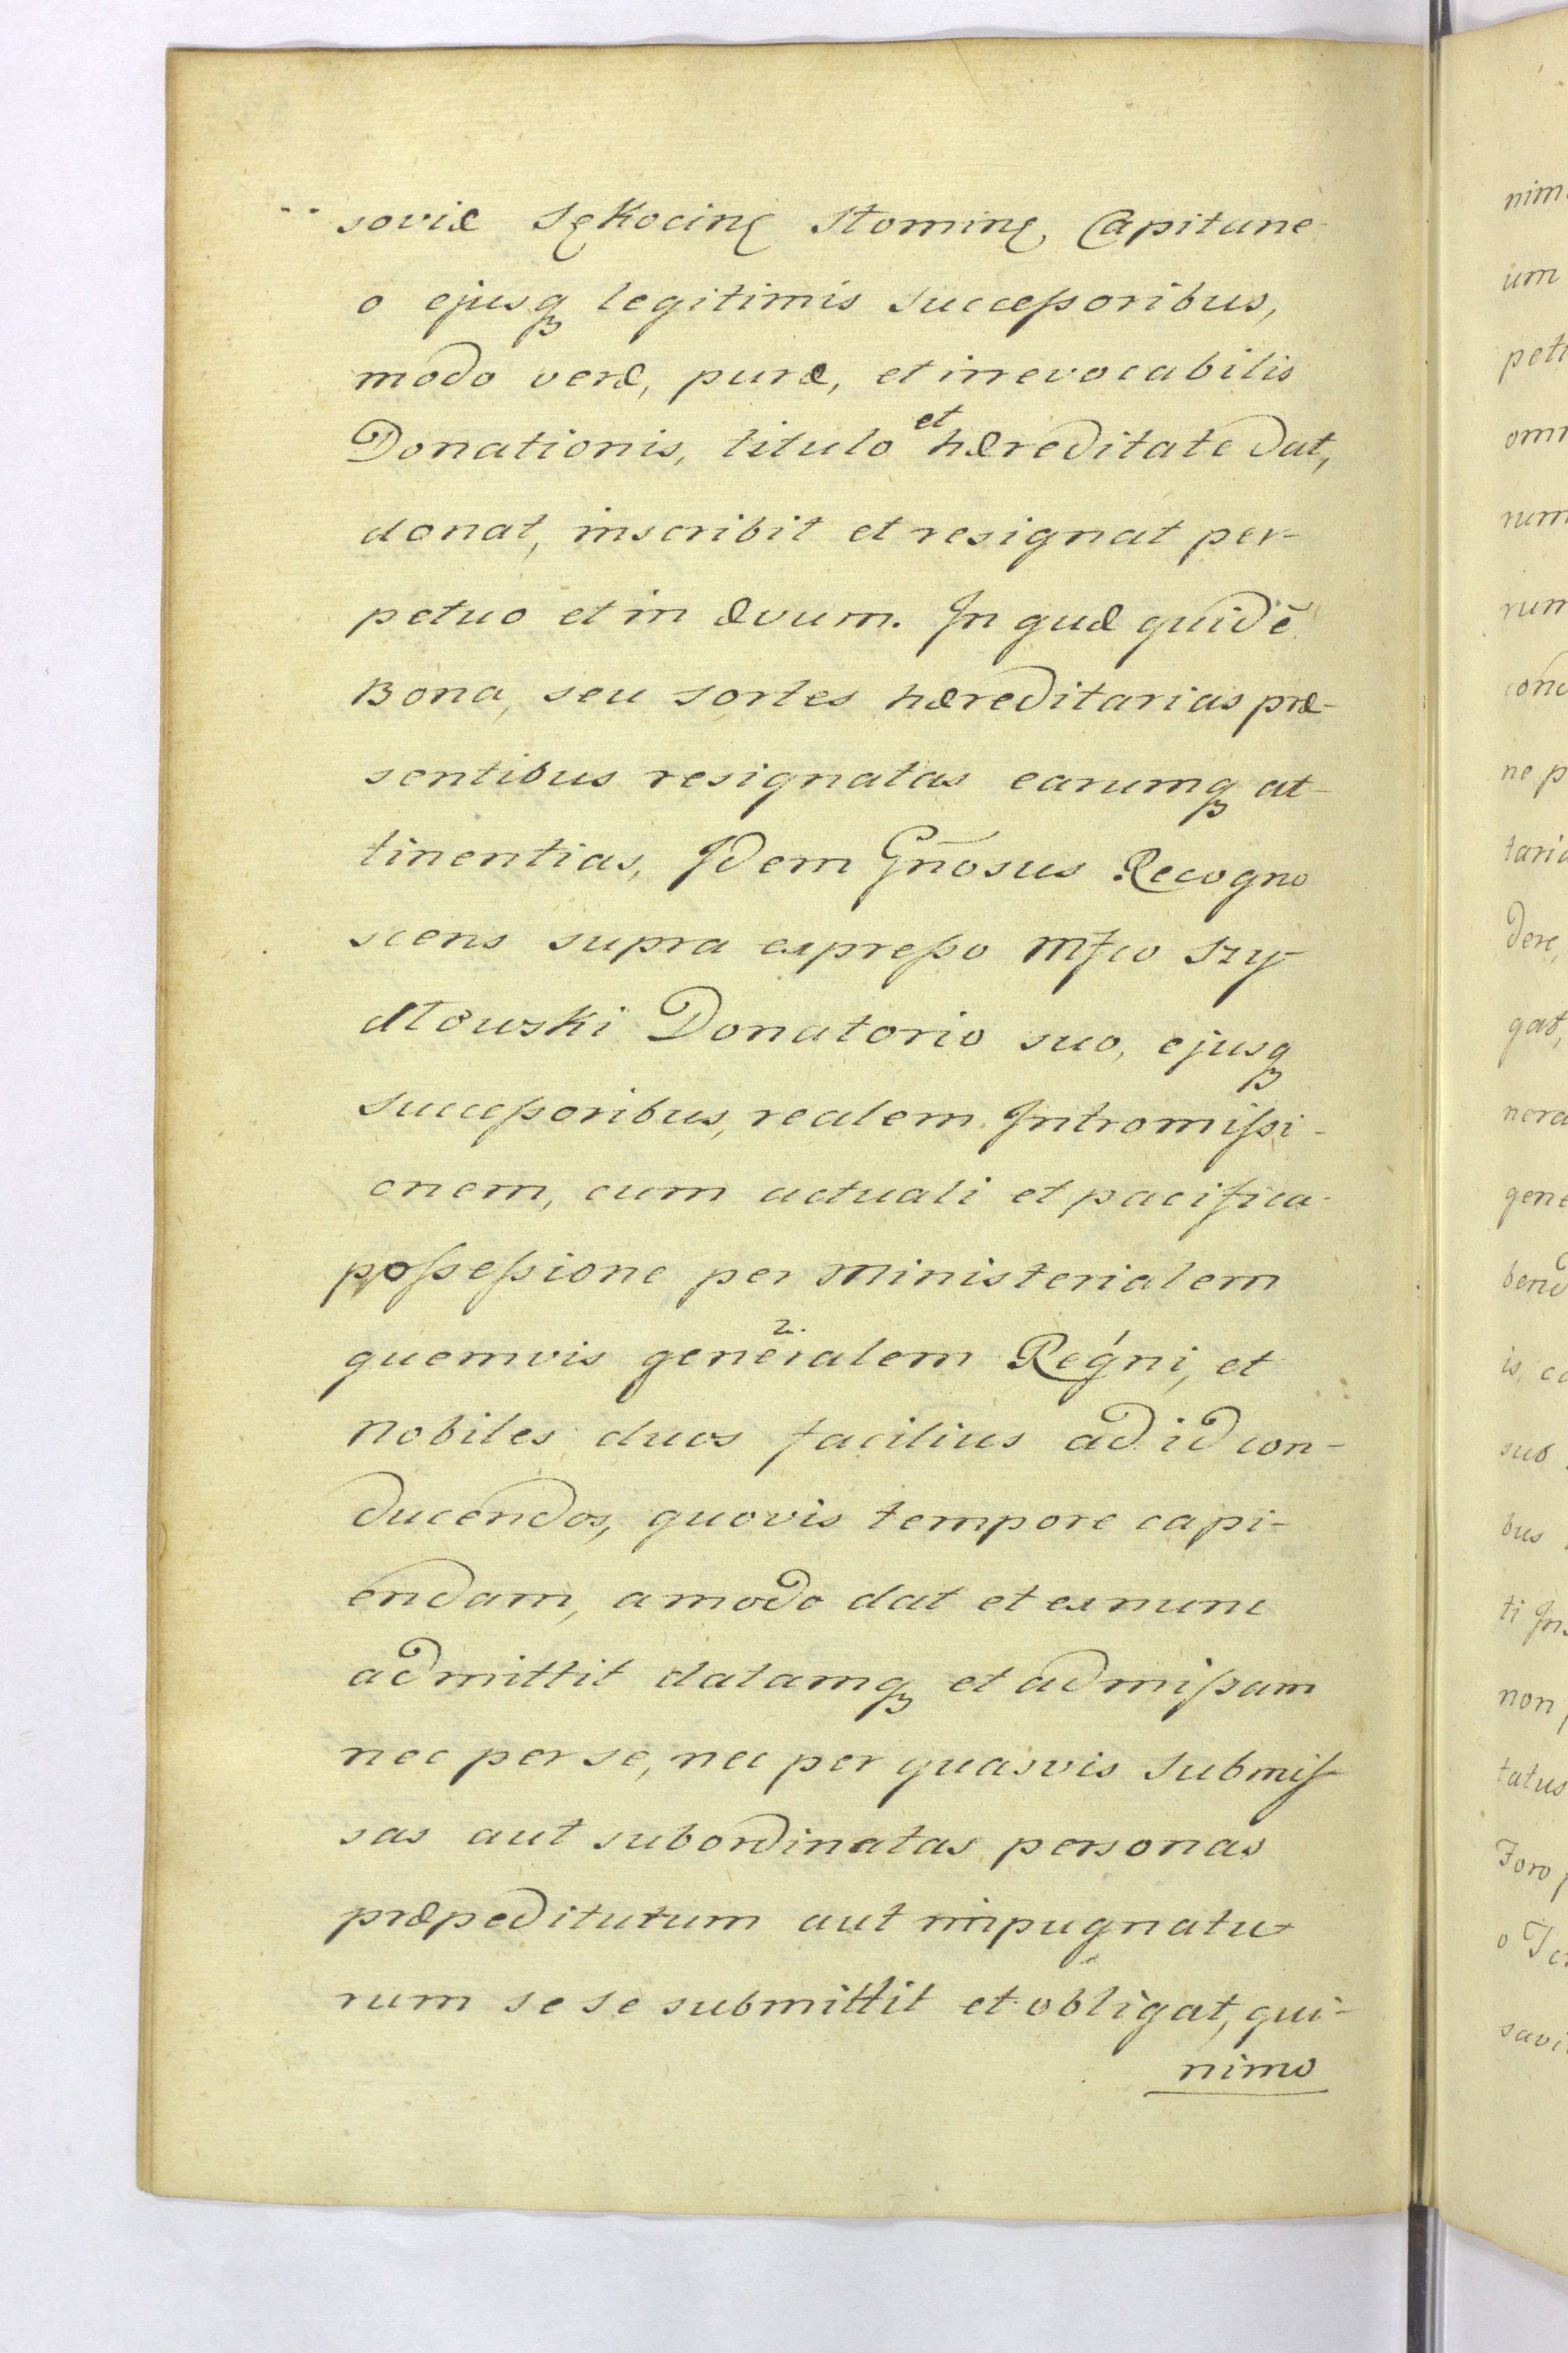 soviæ Sękocinę Słominę, Capitane-
o ejusq₃ legitimis successoribus,
modo veræ, puræ, et irrevocabilis
Donationis, titulo et hæreditate dat,
donat, inscribit et resignat per-
petuo et in ævum. In quæ quidē
Bona, seu sortes hæreditarias præ-
sentibus resignatas earumq₃ at-
tinentias, Idem Gn̄osus Recogno
scens supra expresso Mfco Szy-
dłowski Donatorio suo, ejusq₃
successoribus, realem Intromissi-
onem, cum actuali et pacifica
possessione per Ministerialem
quemvis generalem Regni, et
nobiles duos facilius ad id con-
ducendos, quovis tempore capi-
endam, amodo dat et exnunc
admittit datamq₃ et admissam
nec per se, nec per quasvis submis-
sas aut subordinatas personas
præpediturum aut impugnatu-
rum sese submittit et obligat, qui-
nimo
nim
um
peti
omn
rum
rum
conc
ne p
taria
dere,
gat,
nera
gene
bend
is, co
sub
bus
ti Ins
non p
tatus
Foro p
o Te
savi